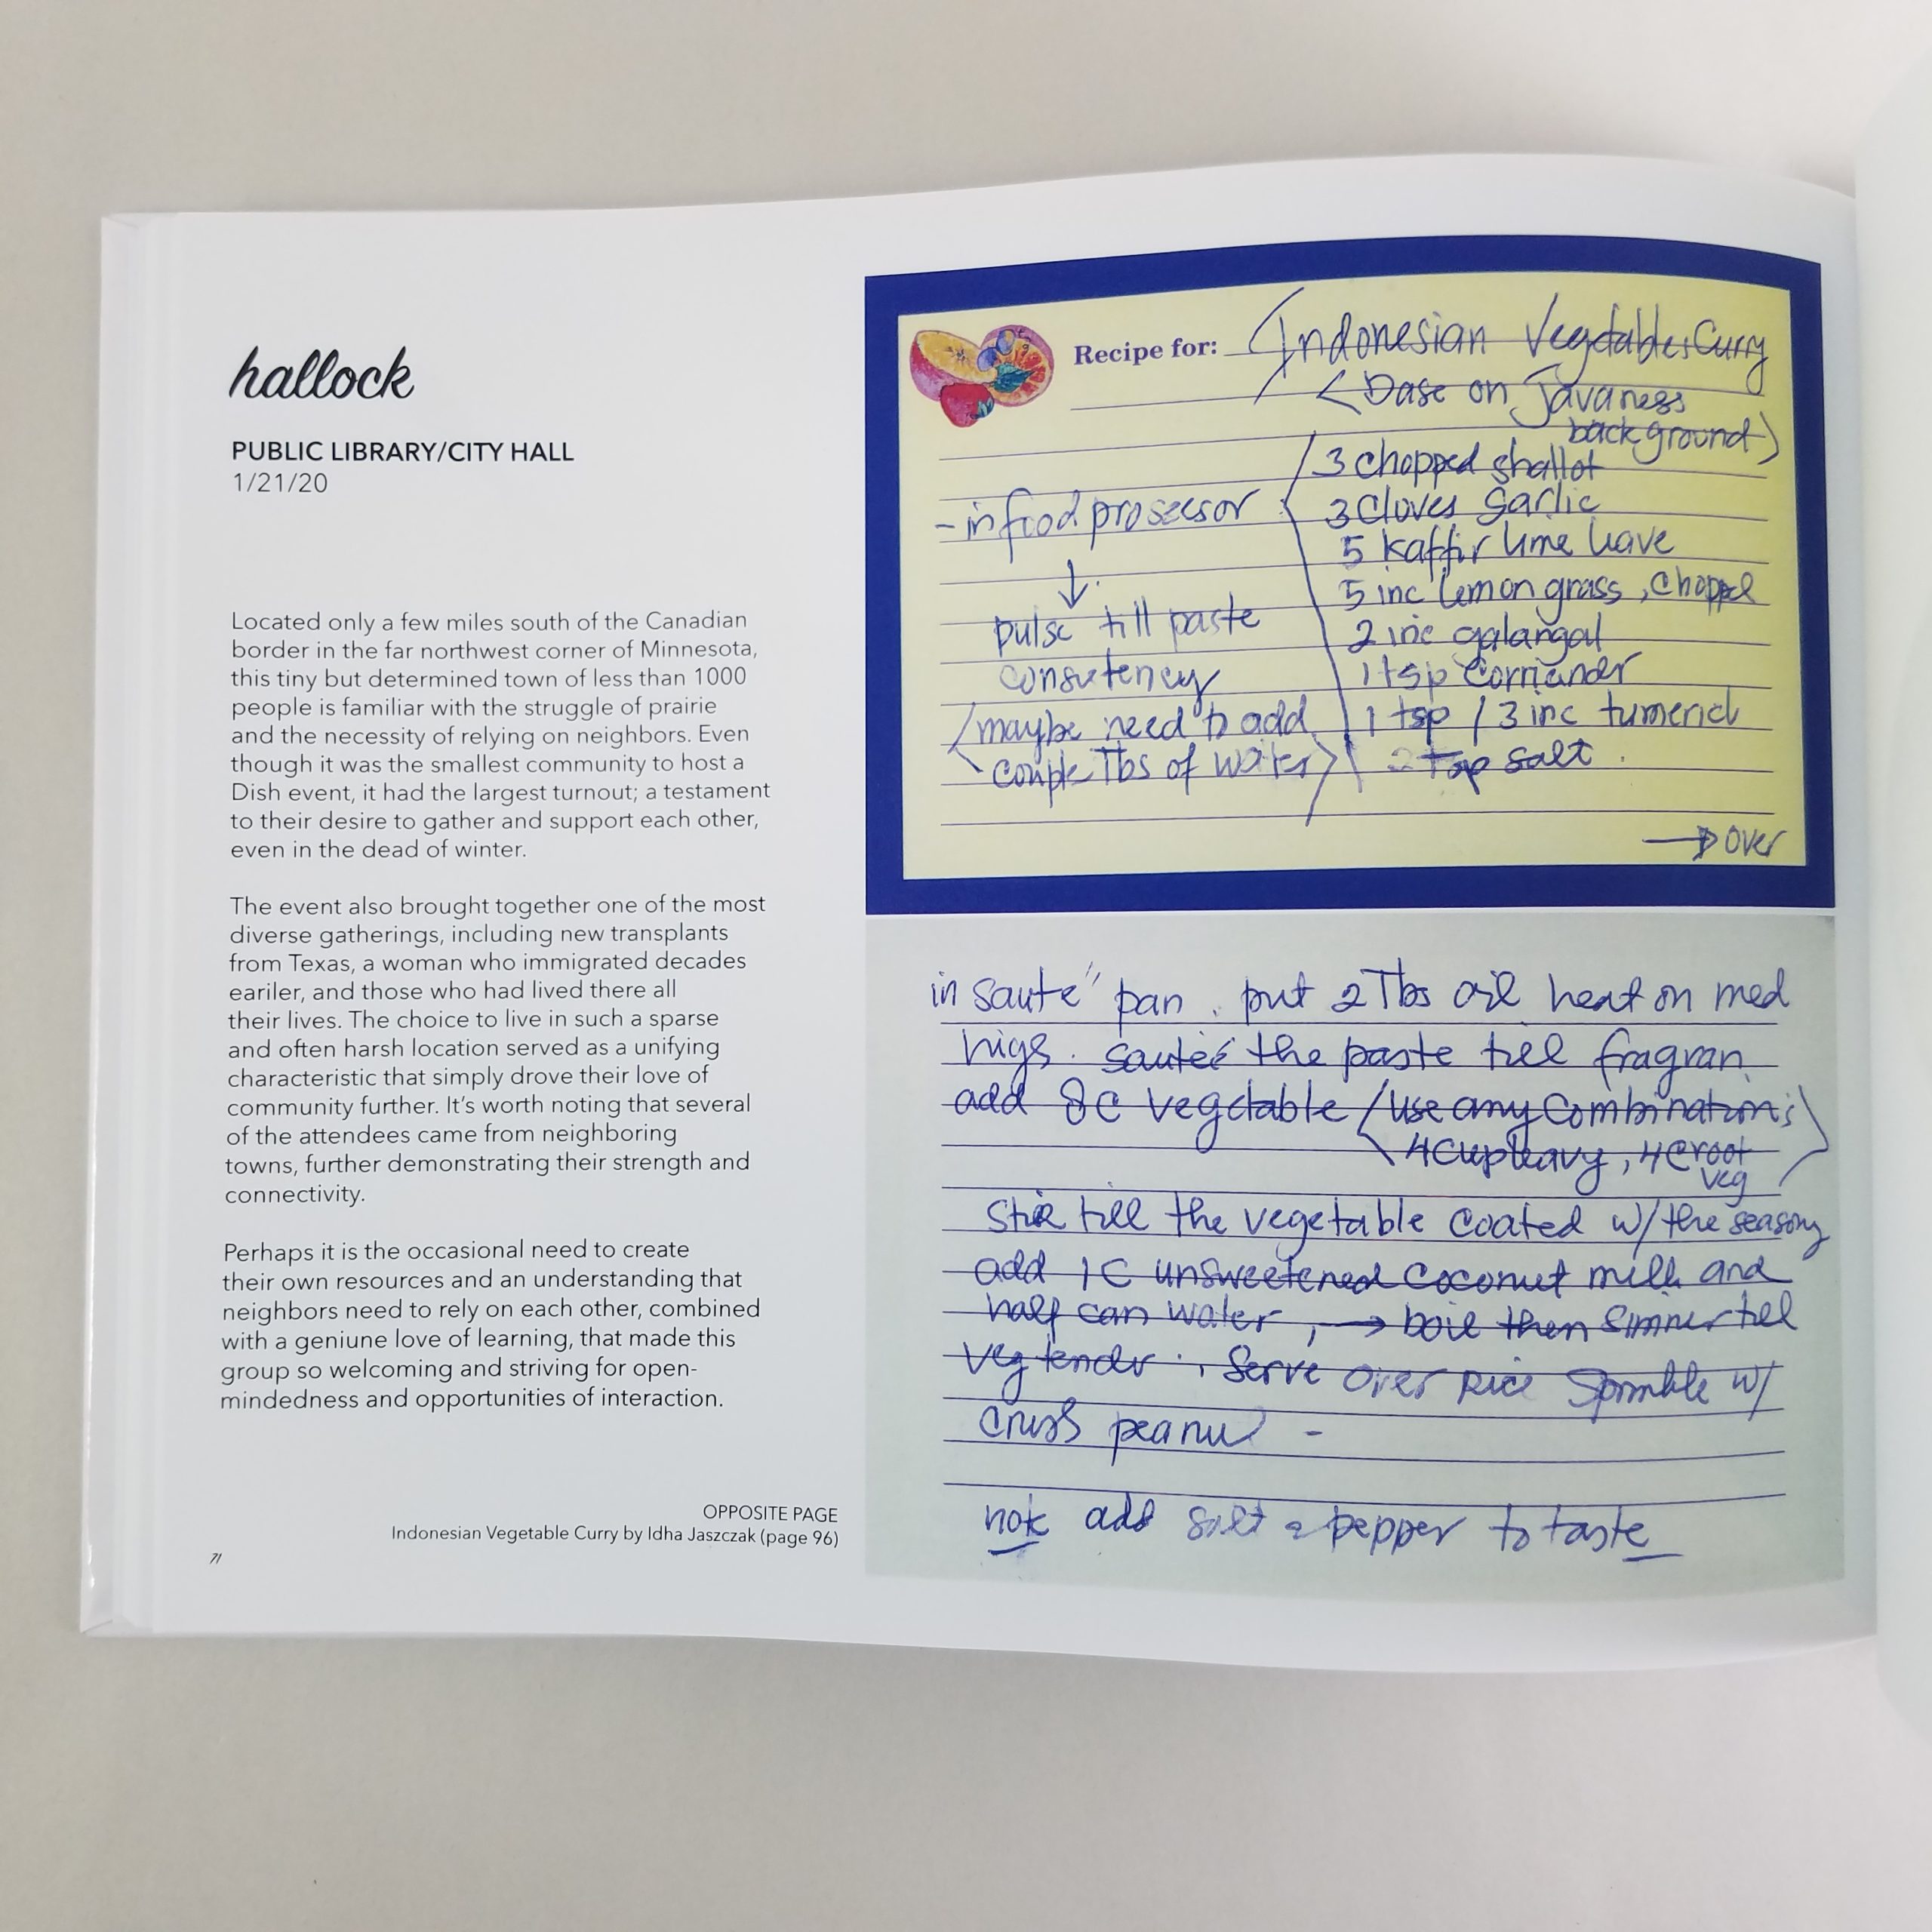 hallock
PUBLIC LIBRARY/CITY HALL
1/21/20
Located only a few miles south of the Canadian
border in the far northwest corner of Minnesota,
this tiny but determined town of less than 1000
people is familiar with the struggle of prairie
and the necessity of relying on neighbors. Even
though it was the smallest community to host a
Dish event, it had the largest turnout; a testament
to their desire to gather and support each other,
even in the dead of winter.
The event also brought together one of the most
diverse gatherings, including new transplants
from Texas, a woman who immigrated decades
eariler, and those who had lived there all
their lives. The choice to live in such a sparse
and often harsh location served as a unifying
characteristic that simply drove their love of
community further. It's worth noting that several
of the attendees came from neighboring
towns, further demonstrating their strength and
connectivity.
Perhaps it is the occasional need to create
their own resources and an understanding that
neighbors need to rely on each other, combined
with a geniune love of learning, that made this
group so welcoming and striving for open-
mindedness and opportunities of interaction.
OPPOSITE PAGE
Indonesian Vegetable Curry by Idha Jaszczak (page 96)
71
Recipe for: Indonesian Vegetables Curry
(base on Javaness
background)
- in food prosecsor
↓
pulse till paste
consistency
(maybe need to add
couple Tbs of water)
3 chopped shallot
3 cloves garlic
5 kaffir lime leave
5 inc lemon grass, chopped
2 inc galangal
1 tsp corriander
1 tsp / 3 inc tumeric
tsp salt.
→ over
in saute pan, put 2 Tbs oil heat on med
high. sauteé the paste till fragran
add 8C vegetable (use any combination;
4 cup leavy, 4C root
veg)
Stir till the vegetable coated w/ the seasong
add 1C unsweetened coconut milk and
half can water, → boil then simmer till
veg tender. Serve over rice Sprinkle w/
crush peanut -
note add salt & pepper to taste